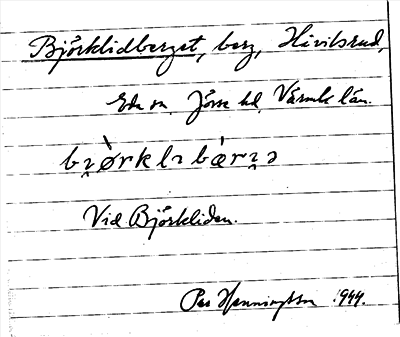 Björklidberget, berg, Hävitsrud,
Eda sn Jösse hd. Värml. län.
Vid Björkliden.
Per Henningsson 1944.